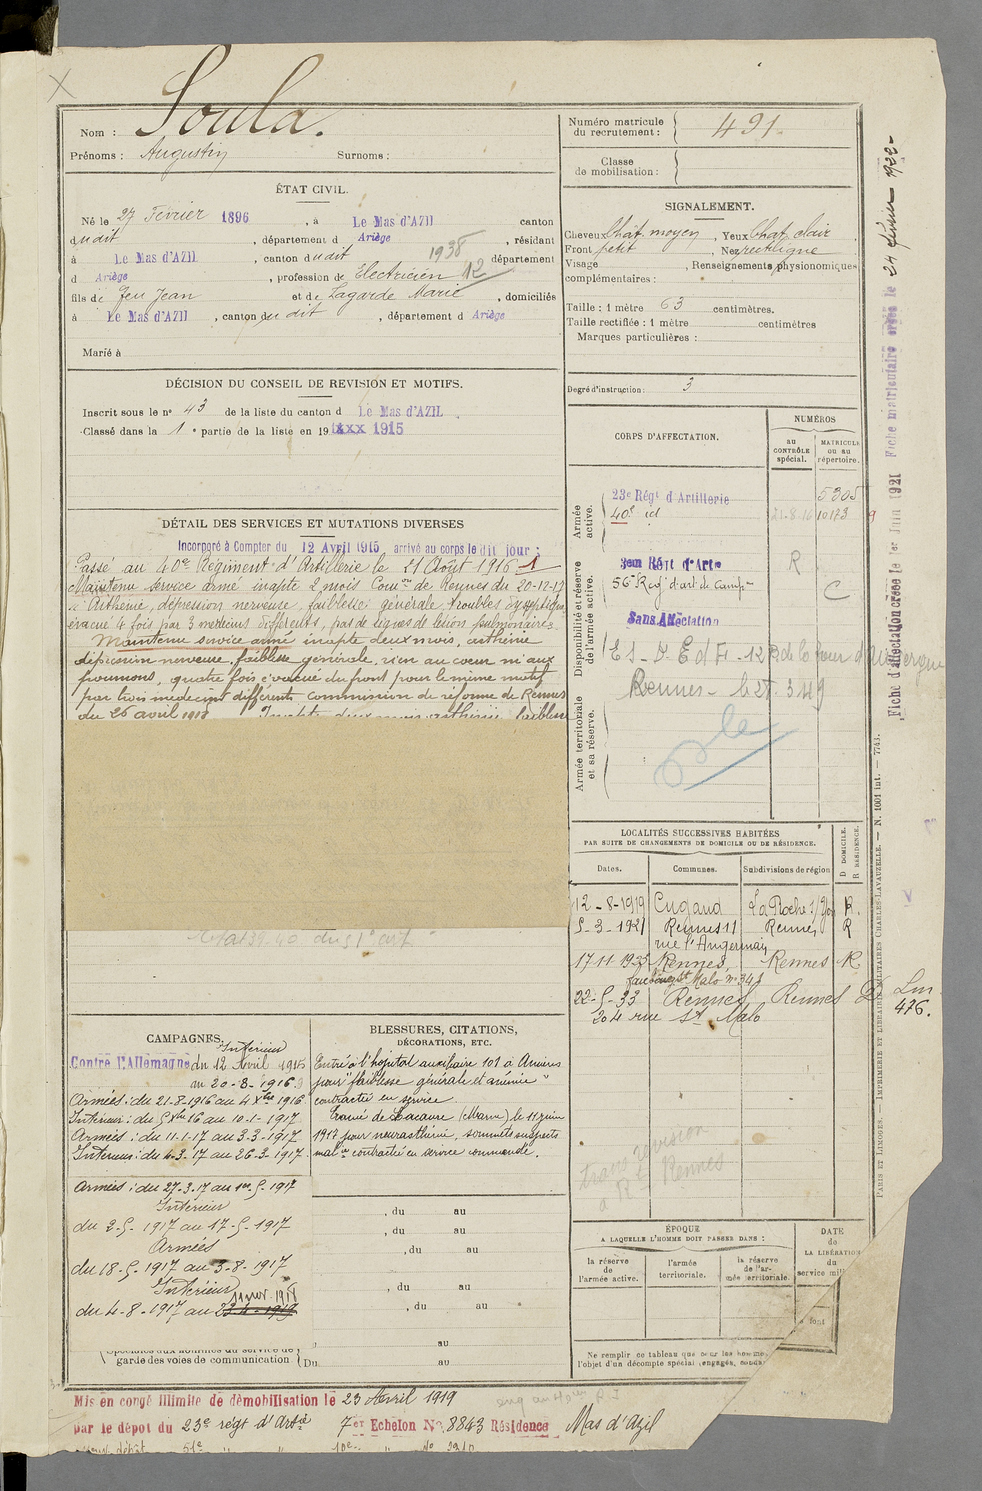 Nom : Soula.
Prénoms : Augustin Surnoms :
Numéro matricule
du recrutement : 491
Classe
de mobilisation :
ÉTAT CIVIL.
Né le 27 Février 1896, à Le Mas d'AZIL canton
dudit, département d Ariège, résidant
à Le Mas d'AZIL, canton dudit 1938 département
d Ariège, profession de Electricien 12
fils de feu Jean et de Lagarde Marie, domiciliés
à Le Mas d'AZIL, canton du dit, département d Ariège
Marié à
SIGNALEMENT.
Cheveux Chât. moyen, Yeux Chat. clair
Front petit, Nez rectiligne
Visage, Renseignements physionomiques
complémentaires :
Taille : 1 mètre 63 centimètres.
Taille rectifiée : 1 mètre centimètres
Marques particulières :
Degré d'instruction : 3
DÉCISION DU CONSEIL DE REVISION ET MOTIFS.
Inscrit sous le n° 43 de la liste du canton d Le Mas d'AZIL
Classé dans la 1e partie de la liste en 19 1915
DÉTAIL DES SERVICES ET MUTATIONS DIVERSES
Incorporé à Compter du 12 Avril 1915 arrivé au corps le dit jour ;
Passé au 40e Régiment d'Artillerie le 21 Août 1916 1
Maintenu service armé inapte 2 mois Com on de Rennes du 20-12-17
Asthénie, dépression nerveuse, faiblesse générale, troubles
évacué 4 fois par 3 médecins différents, pas de signes de lésion pulmonaires
Maintenu service armé inapte deux mois, asthénie
dépression nerveuse, faiblesse générale, rien au coeur ni aux
poumons, quatre fois évacué du front pour le même motif
par trois médecins différents commission de réforme de Rennes
du 26 avril 1918 Inapte deux mois asthénie faiblesse
CORPS D'AFFECTATION.
NUMÉROS
au
CONTRÔLE
spécial.
MATRICULE
ou au
répertoire.
Armée
active.
23e Régt d'Artillerie 5305
40e id 21-8-16 10173 9
Disponibilité et réserve
de l'armée active.
Régt d'Artie R
56e Reg' d'art. de Camp C
Sans Affectation
Rennes - le 28.3.49
Armée territoriale
et sa réserve.
Fiche d'affectation créée le 1er Juin 1921 Fiche matriculaire créée le 24 février 1922
LOCALITÉS SUCCESSIVES HABITÉES
PAR SUITE DE CHANGEMENTS DE DOMICILE OU DE RÉSIDENCE.
D DOMICILE.
R RÉSIDENCE.
Dates. Communes. Subdivisions de région
12-8-1919 Cugand La Roche s/Yon R.
5-3-1921 Rennes 11 Rennes R
rue
17 11 1925 Rennes, Rennes R
faubourg St Malo n° 34
22-5-33 Rennes Rennes D
204 rue St Malo
476.
trans revision
à Rennes
CAMPAGNES.
Contre l'Allemagne Intérieur
du 12 Avril 1915
au 20-8-1916
Armées : du 21-8-1916 au 4 Xbre 1916
Intérieur : du 5 Xbre 16 au 10-1-1917
Armées : du 11-1-17 au 3-3-1917
Intérieur : du 4-3-17 au 26-3-1917
Armées : du 27-3-17 au 1er-5-1917
Intérieur
du 2-5-1917 au 17-5-1917
Armées
du 18-5-1917 au 3-8-1917
Intérieur
11 nov. 1918
du 4-8-1917 au 23-4-1919
garde des voies de communication Du au
BLESSURES, CITATIONS,
DÉCORATIONS, ETC.
Entré à l'hôpital auxiliaire 101 à Amiens
pour "faiblesse générale et anémie"
contractée en service.
Evacué de (Marne) le 11 juin
1917 pour neurasthénie, sommets suspects
mal ie contractée en service commandé.
, du au
, du au
, du au
, du au
, du au
au
ÉPOQUE
A LAQUELLE L'HOMME DOIT PASSER DANS :
la réserve
de
l'armée active.
l'armée
territoriale.
la réserve
de l'ar-
mée territoriale.
DATE
de
LA LIBÉRATION
du
service mili
Ne remplir ce tableau que pour les hommes
l'objet d'un décompte spécial (engagés,
PARIS ET LIMOGES. — IMPRIMERIE ET LIBRAIRIE MILITAIRES CHARLES-LAVAUZELLE. — N. 1001 int. — 7743.
Mis en congé illimité de démobilisation le 23 Avril 1919
par le dépot du 23e régt d'Artie 7er Echelon No 8843 Résidence Mas d'Azil